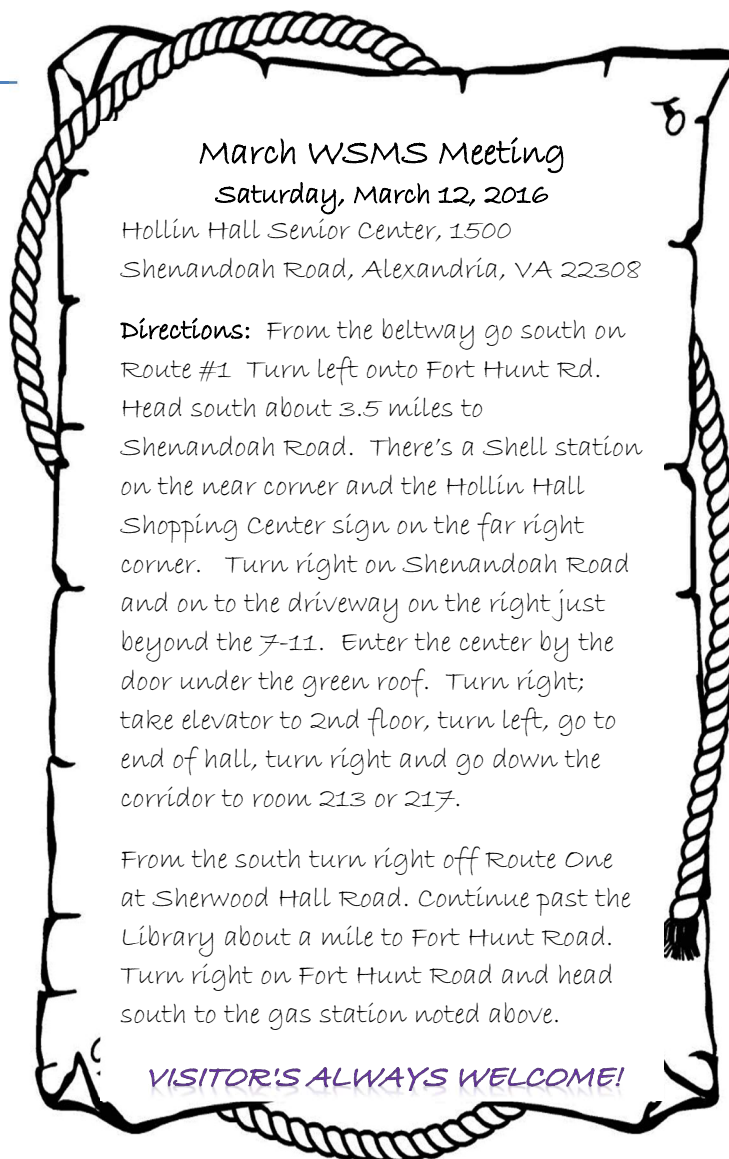 March WSMS Meeting
Saturday, March 12, 2016
Hollin Hall Senior Center, 1500
Shenandoah Road, Alexandria, VA 22308
Directions:  From the beltway go south on
Route #1  Turn left onto Fort Hunt Rd.
Head south about 3.5 miles to
Shenandoah Road.  There's a Shell station
on the near corner and the Hollin Hall
Shopping Center sign on the far right
corner.   Turn right on Shenandoah Road
and on to the driveway on the right just
beyond the 7-11.  Enter the center by the
door under the green roof.  Turn right;
take elevator to 2nd floor, turn left, go to
end of hall, turn right and go down the
corridor to room 213 or 217.
From the south turn right off Route One
at Sherwood Hall Road. Continue past the
Library about a mile to Fort Hunt Road.
Turn right on Fort Hunt Road and head
south to the gas station noted above.
VISITOR'S ALWAYS WELCOME!